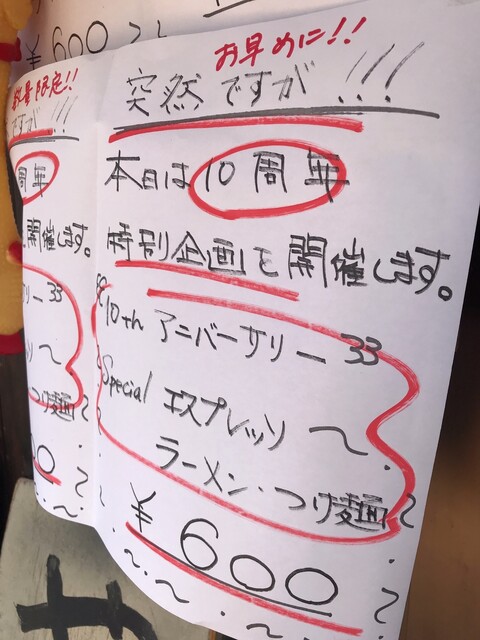 ¥600
お早めに!!
突然ですが!!!
本日は10周毎
特別企画を開催します。
“10th アニバーサリー”
Special エスプレッソ 〜
ラーメン・つけ麺
¥600
数量限定!!
ですが!!!
周毎
開催します。
サリー”
レッソ 〜
つけ麺
00